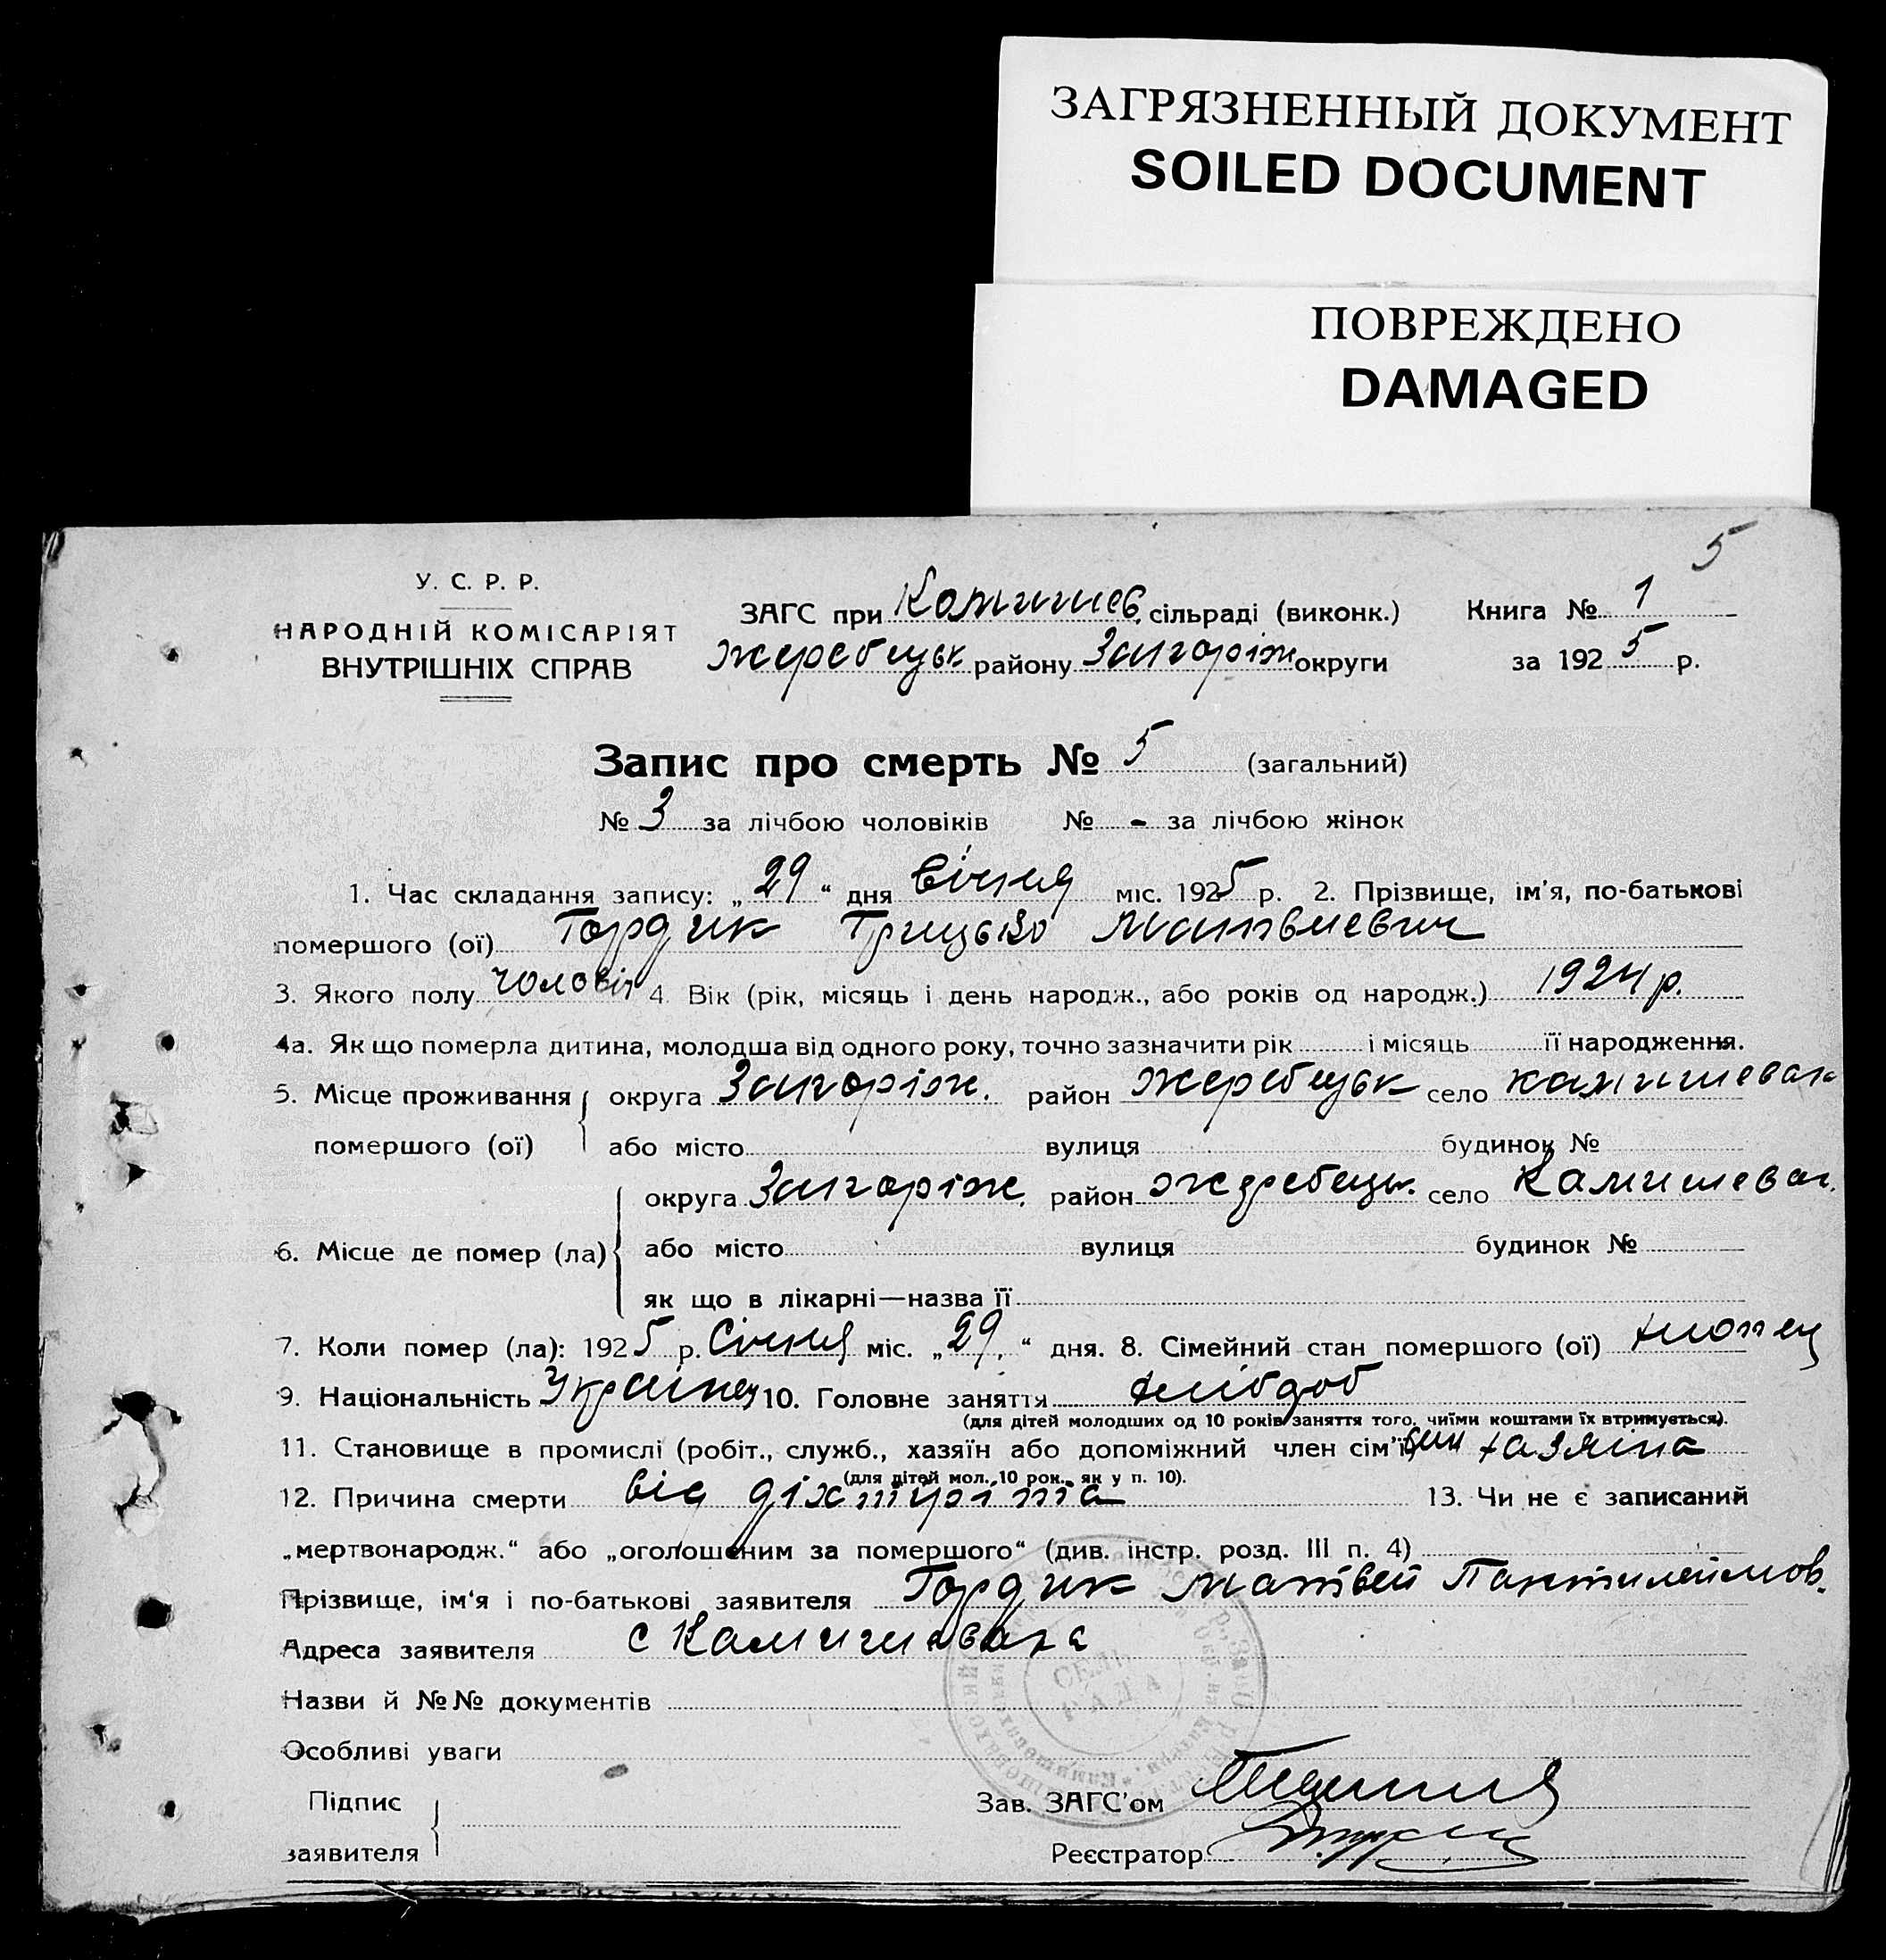 ЗАГРЯЗНЕННЫЙ ДОКУМЕНТ
SOILED DOCUMENT
ПОВРЕЖДЕНО
DAMAGED
5
У. С. Р. Р.
НАРОДНІЙ КОМІСАРІЯТ
ВНУТРІШНІХ СПРАВ
ЗАГС при Комишев. сільраді (виконк.) Книга № 1
Жеребецьк районну Запоріж округи за 1925 р.
Запис про смерть № 5 (загальний)
№ 3 за лічбою чоловіків № - за лічбою жінок
1. Час складання запису: „29“ дня Січня міс. 1925 р. 2. Прізвище, ім'я, по-батькові
помершого (ої) Гордик Грицько Матвиевич
3. Якого полу чоловіч 4. Вік (рік, місяць і день народж., або років од народж.) 1924 р.
4а. Як що померла дитина, молодша від одного року, точно зазначити рік і місяць її народження.
5. Місце проживання помершого (ої) округа Запоріж. район Жеребецьк село Камишеваха
або місто вулиця будинок №
6. Місце де помер (ла) округа Запоріж. район Жеребецьк. село Камишевах.
або місто вулиця будинок №
як що в лікарні—назва її
7. Коли помер (ла): 1925 р. Січня міс. „29“ дня. 8. Сімейний стан помершого (ої) хлопец
9. Національність Українец 10. Головне заняття хлібороб
(для дітей молодших од 10 років заняття того, чиїми коштами їх втримується).
11. Становище в промислі (робіт., служб., хазяїн або допоміжний член сім'ї) син хазяіна
(для дітей мол. 10 рок., як у п. 10).
12. Причина смерти від діхтиріта 13. Чи не є записаний
„мертвонародж.“ або „оголошеним за помершого“ (див. інстр. розд. III п. 4)
Прізвище, ім'я і по-батькові заявителя Гордик Матвей Пантилеймов.
Адреса заявителя с Камишеваха
Назви й №№ документів
Особливі уваги
СЕЛЬ
РАДА
Підпис заявителя
Зав. ЗАГС'ом
Реєстратор